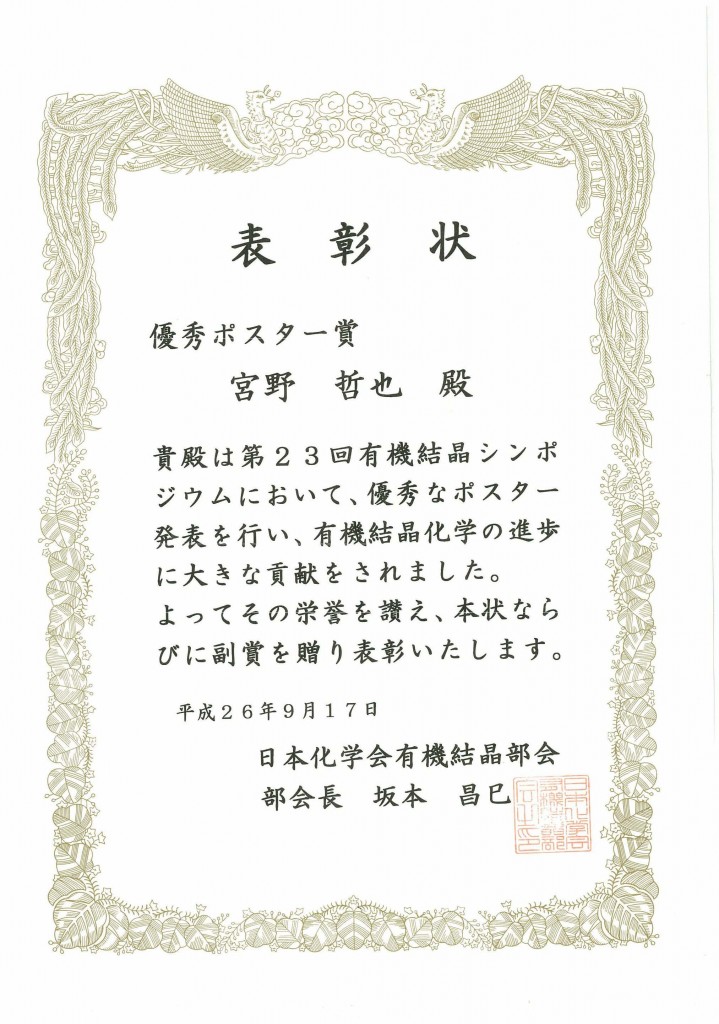 表 彰 状
優秀ポスター賞
宮野 哲也 殿
貴殿は第２３回有機結晶シンポ
ジウムにおいて、優秀なポスター
発表を行い、有機結晶化学の進歩
に大きな貢献をされました。
よってその栄誉を讃え、本状なら
びに副賞を贈り表彰いたします。
平成２６年９月１７日
日本化学会有機結晶部会
部会長 坂本 昌巳